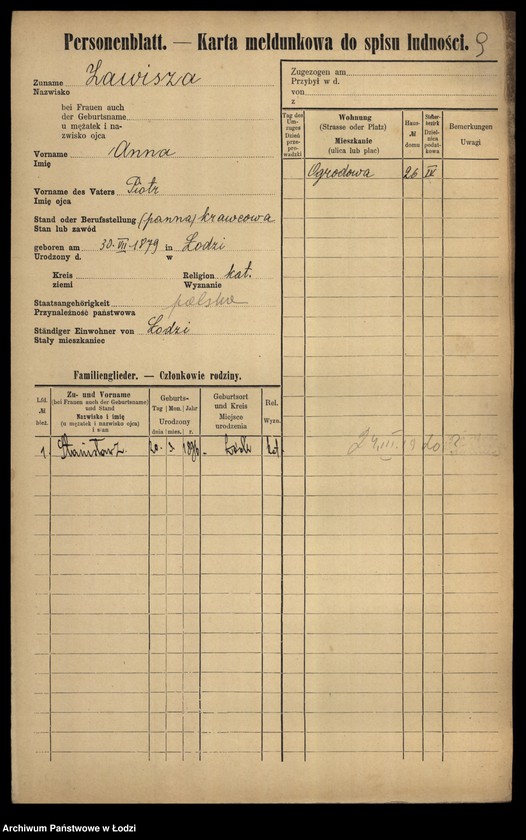 Personenblatt. — Karta meldunkowa do spisu ludności. 9
Zuname Zawisza
Nazwisko
bei Frauen auch
der Geburtsname
u mężatek i na-
zwisko ojca
Vorname Anna
Imię
Vorname des Vaters Piotr
Imię ojca
Stand oder Berufsstellung (panna) krawcowa
Stan lub zawód
geboren am 30.VII.1879 in Łodzi
Urodzony d. w
Kreis Religion kat.
ziemi Wyznanie
Staatsangehörigkeit polska
Przynależność państwowa
Ständiger Einwohner von Łodzi
Stały mieszkaniec
Zugezogen am
Przybył w d.
von
z
Tag des Um-zuges Dzień prze-prowadzki
Wohnung (Strasse oder Platz) Mieszkanie (ulica lub plac)
Haus- № domu
Steuer-bezirk Dzielnica podat-kowa
Bemerkungen Uwagi
Ogrodowa 26 IX
Familienglieder. — Członkowie rodziny.
Lfd. № bież.
Zu- und Vorname (bei Frauen auch der Geburtsname) und Stand Nazwisko i imię (u mężatek i nazwisko ojca) i stan
Geburts- Tag | Mon. | Jahr Urodzony dnia | mies. | r.
Geburtsort und Kreis Miejsce urodzenia
Rel. Wyzn.
1. Stanisław Z. 20 3 kat.
24.III.19 do ?
Archiwum Państwowe w Łodzi